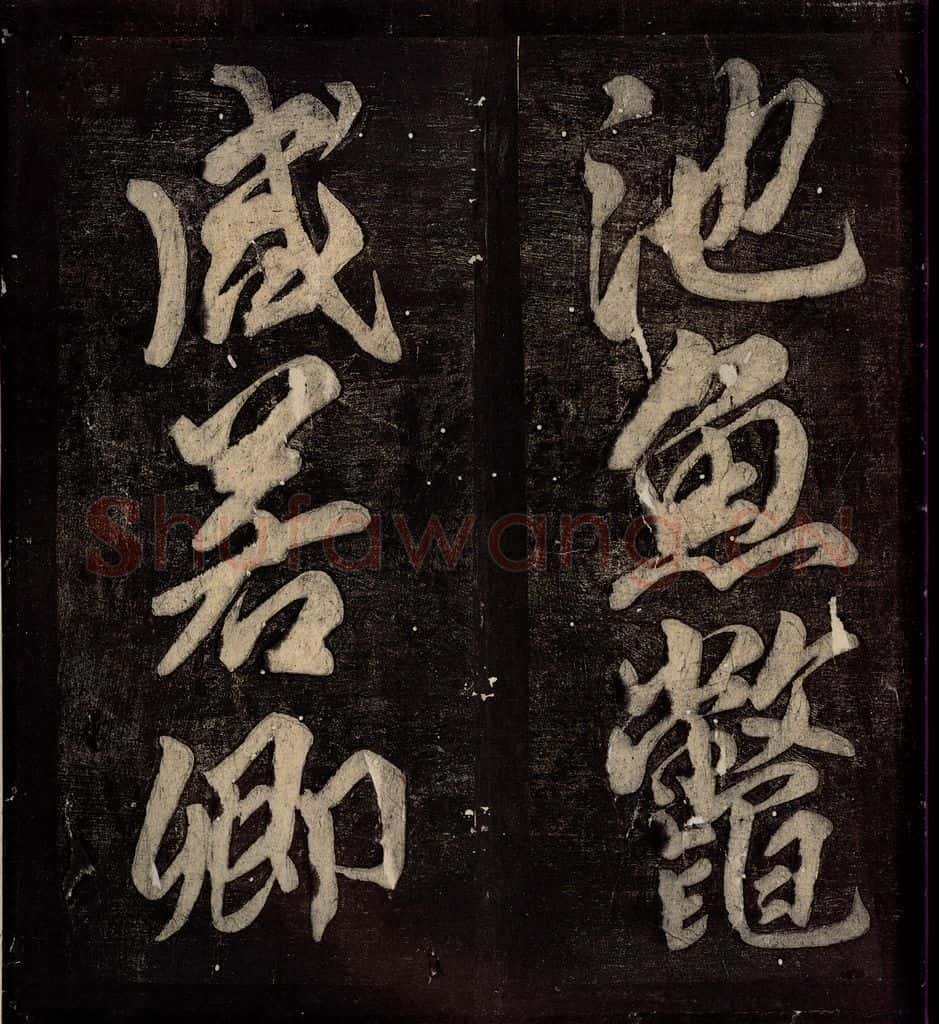 池魚鼈
咸若卿
Shufawang.CN